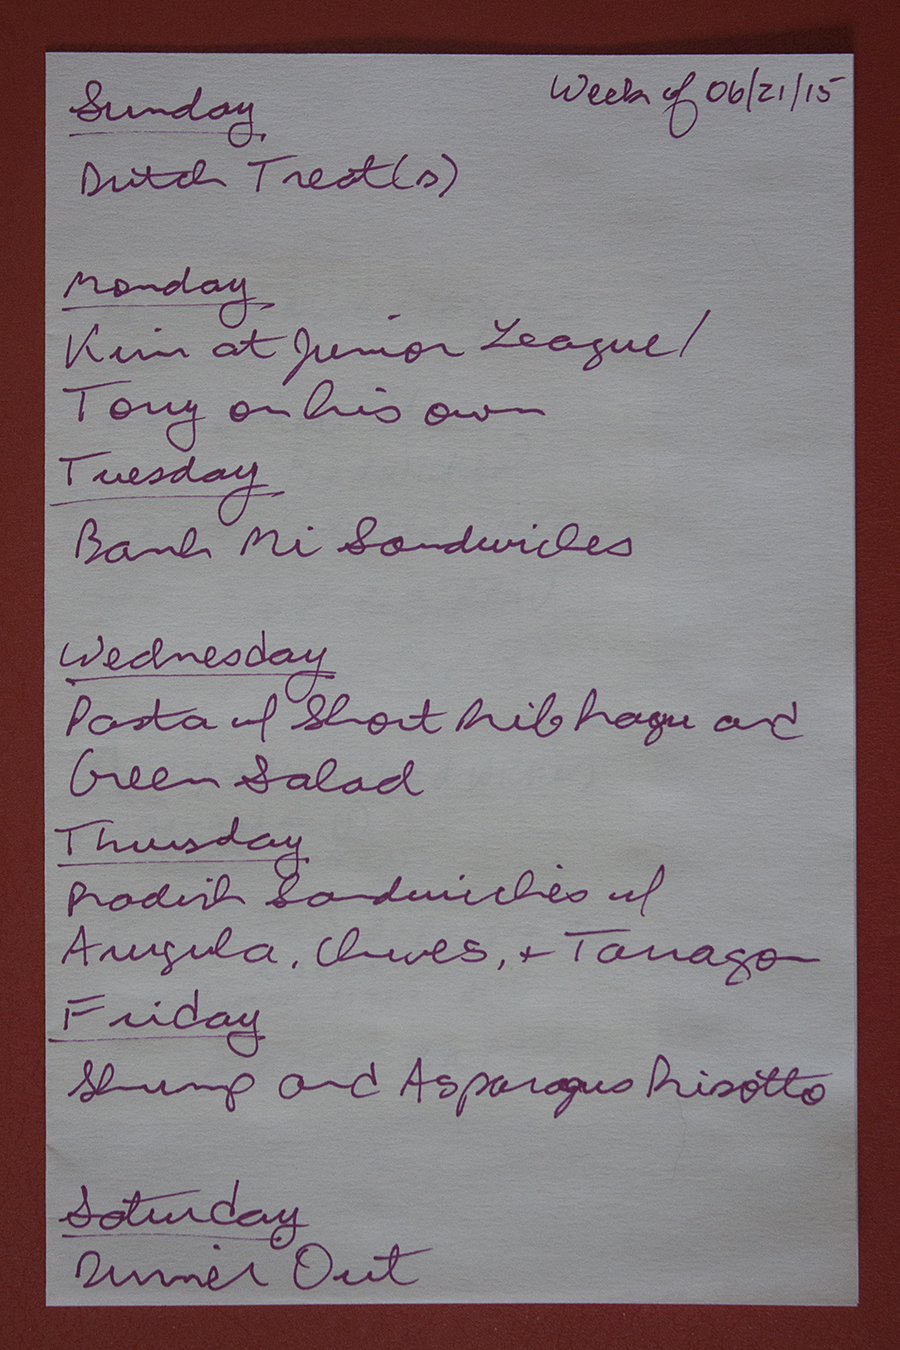 Week of 06/21/15
Sunday
Dutch Treat(s)
Monday
Kim at Junior League/
Tony on his own
Tuesday
Banh Mi Sandwiches
Wednesday
Pasta w/ Short Rib Ragu and
Green Salad
Thursday
Radish Sandwiches w/
Arugula, Chives, + Tarragon
Friday
Shrimp and Asparagus Risotto
Saturday
Dinner Out